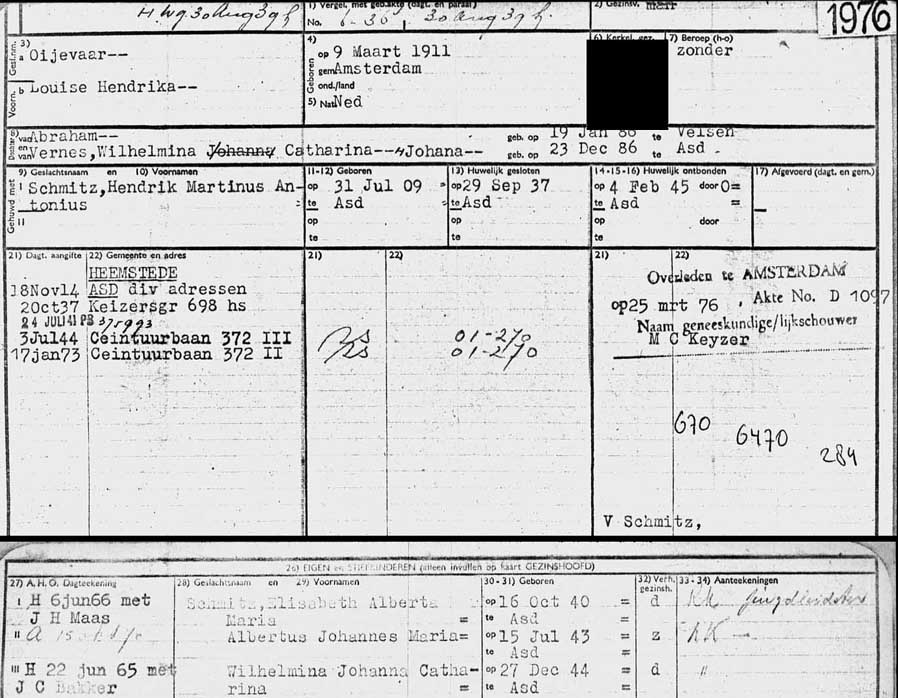 H Wg 30 Aug 39
1) Vergel. met geb.akte (dagt. en paraaf)
No. 30 Aug 39
2) Gezinsv.
1976
3)
Gesl.nm. a Oijevaar--
Voorn. b Louise Hendrika--
4)
Geboren op 9 Maart 1911
gem Amsterdam
ond./land
5) Nat. Ned
6) Kerkel. gez.
7) Beroep (h-o)
zonder
8) van Abraham-- geb. op 19 Jan 86 te Velsen
en van Vernes, Wilhelmina Johanna Catharina--Johana-- geb. op 23 Dec 86 te Asd
9) Geslachtsnaam en 10) Voornamen
11-12) Geboren
13) Huwelijk gesloten
14-15-16) Huwelijk ontbonden
17) Afgevoerd (dagt. en gem.)
Gehuwd met
I Schmitz, Hendrik Martinus An- op 31 Jul 09 = op 29 Sep 37 op 4 Feb 45 door O=
tonius = te Asd = te Asd te Asd =
II op op op door
te te te
21) Dagt. aangifte 22) Gemeente en adres 21) 22) 21) 22)
HEEMSTEDE
18Nov14 ASD div adressen
20ct37 Keizersgr 698 hs
24 JULI 41 PB 375993
3Jul44 Ceintuurbaan 372 III 01-270
17jan73 Ceintuurbaan 372 II 01-270
Overleden te AMSTERDAM
op 25 mrt 76 . Akte No. D 1097
Naam geneeskundige/lijkschouwer
M C Keyzer
670
6470
284
V Schmitz,
26) EIGEN en STIEFKINDEREN (alleen invullen op kaart GEZINSHOOFD)
27) A.H.O. Dagteekening 28) Geslachtsnaam en 29) Voornamen 30-31) Geboren 32) Verh. gezinsh. 33-34) Aanteekeningen
I H 6jun66 met Schmitz, Elisabeth Alberta op 16 Oct 40 = d KK
J H Maas Maria = te Asd =
II A Albertus Johannes Maria= op 15 Jul 43 = z KK -
te Asd =
III H 22 jun 65 met Wilhelmina Johanna Catha- op 27 Dec 44 = d "
J C Bakker rina = te Asd =